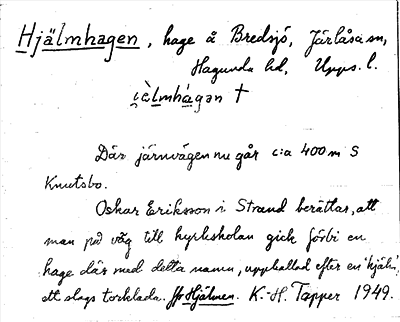 Hjälmhagen, hage å Bredsjö, Järlåsa sn,
Hagunda hd, Upps. l.
i̯àlmhágən †
Där järnvägen nu går c:a 400 m S
Knutsbo.
Oskar Eriksson i Strand berättar, att
man på väg till kyrkskolan gick förbi en
hage där med detta namn, uppkallad efter en 'hjälm',
ett slags torklada. Jfr Hjälmen. K.-H. Tapper 1949.